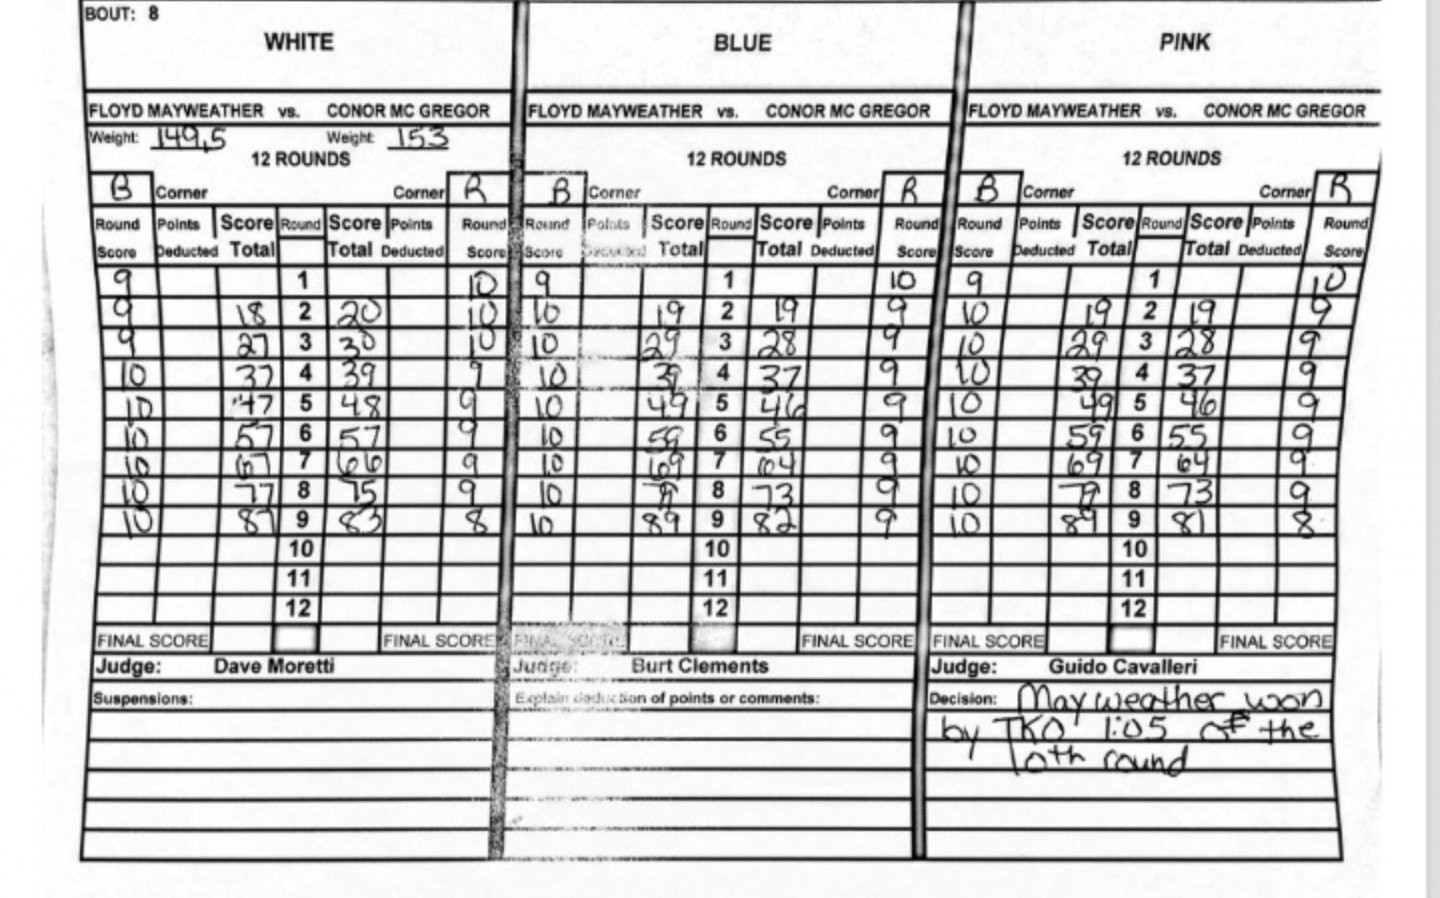 BOUT: 8
WHITE BLUE PINK
FLOYD MAYWEATHER vs. CONOR MC GREGOR FLOYD MAYWEATHER vs. CONOR MC GREGOR FLOYD MAYWEATHER vs. CONOR MC GREGOR
Weight: 149,5 Weight: 153
12 ROUNDS 12 ROUNDS 12 ROUNDS
B Corner Corner R B Corner Corner R B Corner Corner R
Round Points Score Round Score Points Round Round Points Score Round Score Points Round Round Points Score Round Score Points Round
Score Deducted Total Total Deducted Score Score Deducted Total Total Deducted Score Score Deducted Total Total Deducted Score
9 1 10 9 1 10 9 1 10
9 18 2 20 10 10 19 2 19 9 10 19 2 19 9
9 27 3 30 10 10 29 3 28 9 10 29 3 28 9
10 37 4 39 9 10 39 4 37 9 10 39 4 37 9
10 47 5 48 9 10 49 5 46 9 10 49 5 46 9
10 57 6 57 9 10 59 6 55 9 10 59 6 55 9
10 67 7 66 9 10 69 7 64 9 10 69 7 64 9
10 77 8 75 9 10 79 8 73 9 10 79 8 73 9
10 87 9 83 8 10 89 9 82 9 10 89 9 81 8
10 10 10
11 11 11
12 12 12
FINAL SCORE FINAL SCORE FINAL SCORE FINAL SCORE FINAL SCORE FINAL SCORE
Judge: Dave Moretti Judge: Burt Clements Judge: Guido Cavalleri
Suspensions: Explain deduction of points or comments: Decision: Mayweather won
by TKO 1:05 of the
10th round